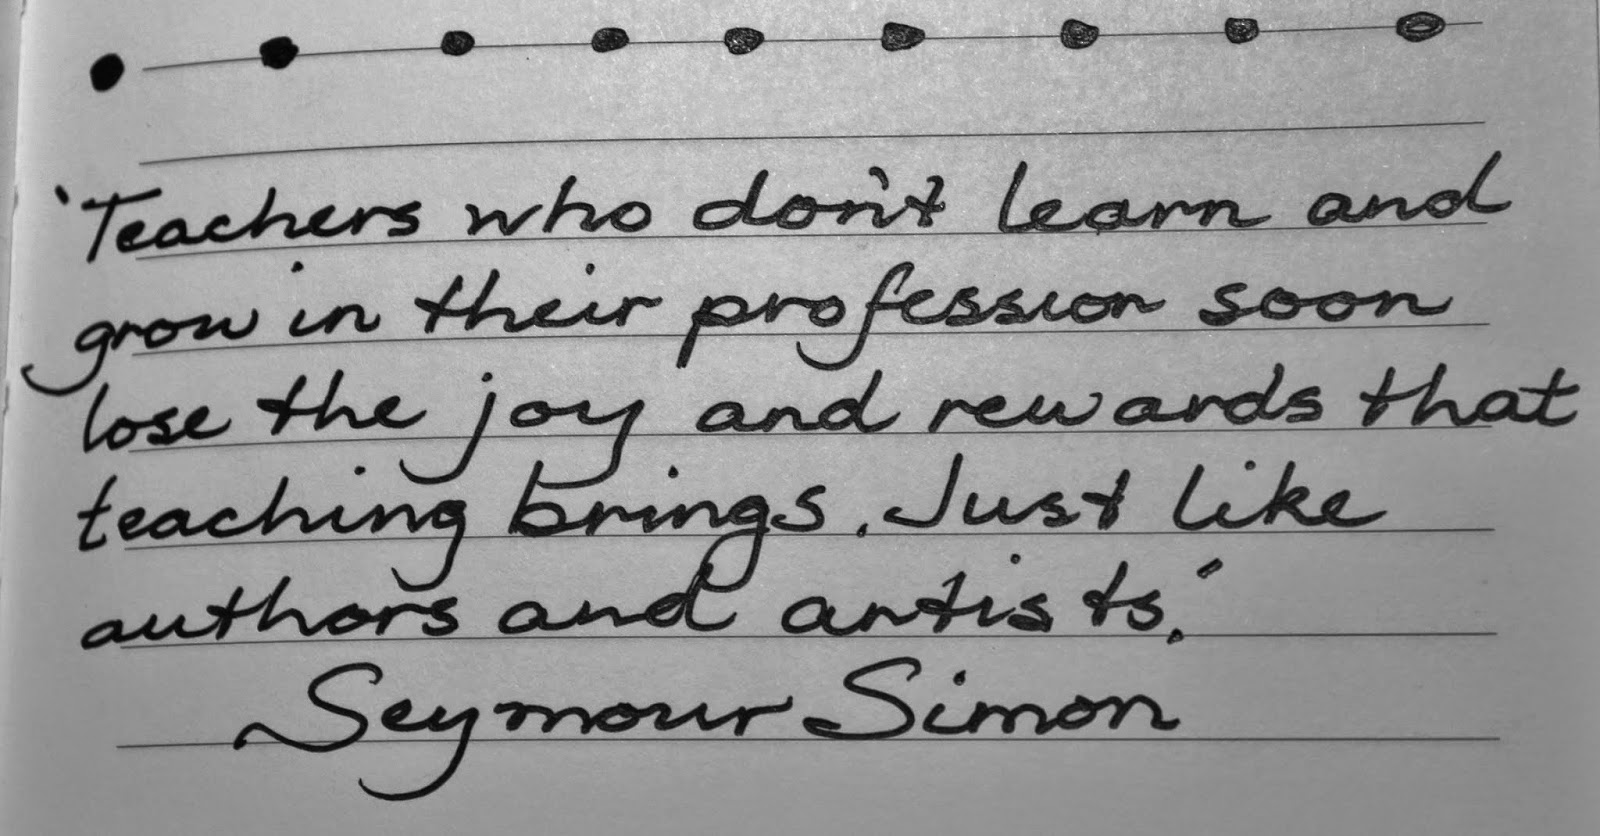 'Teachers who don't learn and
grow in their profession soon
lose the joy and rewards that
teaching brings. Just like
authors and artists.'
Seymour Simon